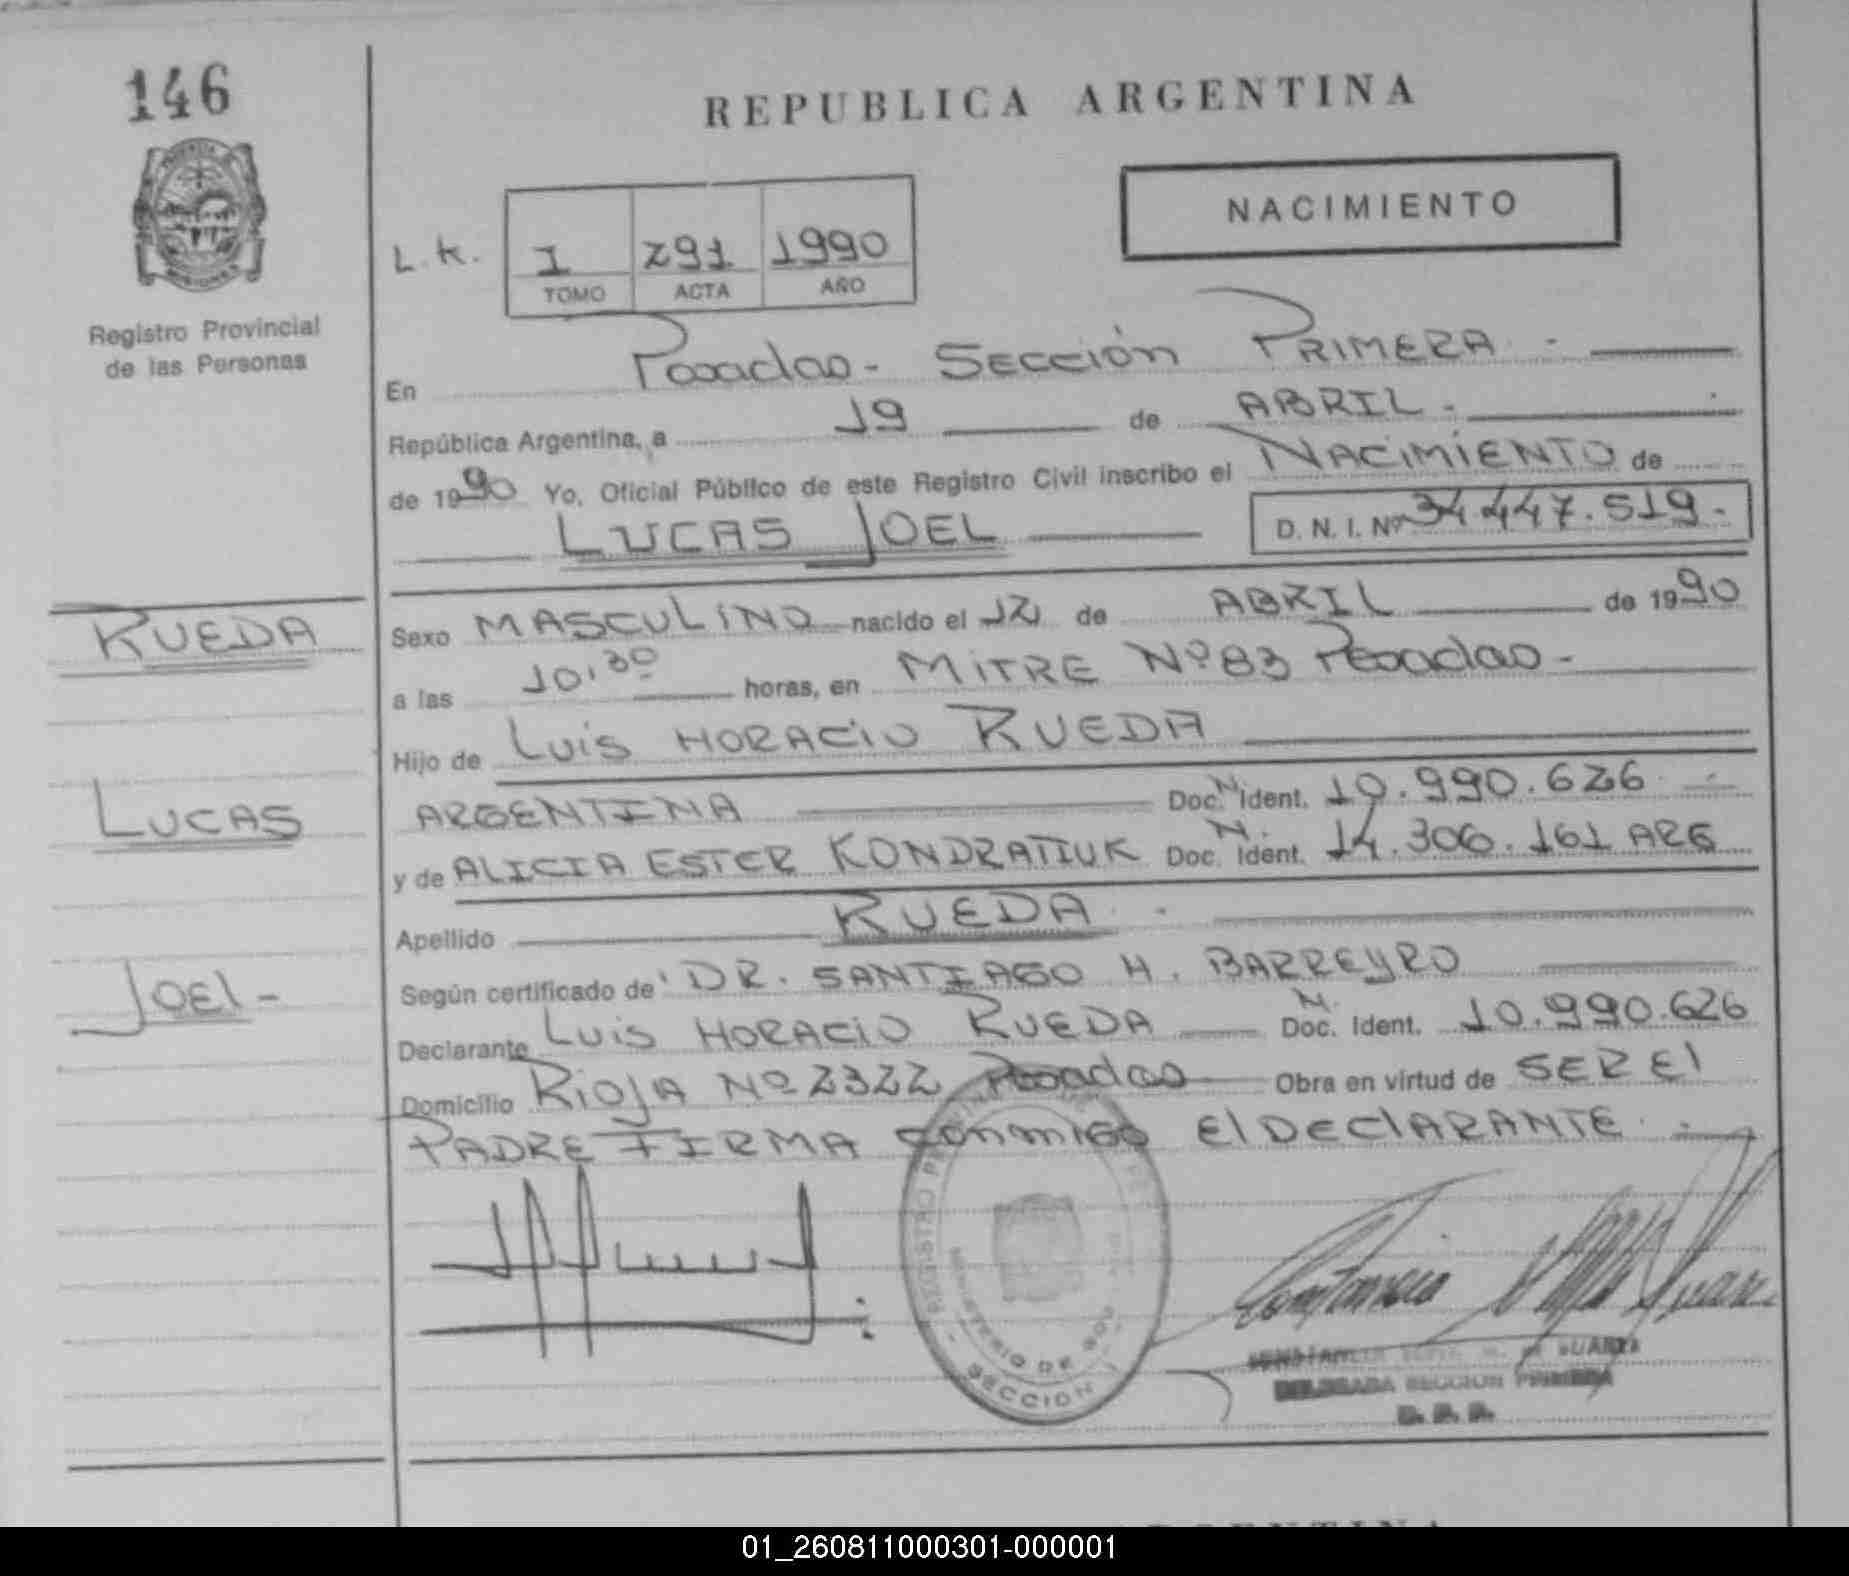 146
REPUBLICA ARGENTINA
NACIMIENTO
L.K. I 291 1990
TOMO ACTA AÑO
Registro Provincial
de las Personas
En Posadas - Sección PRIMERA.-
República Argentina, a 19 de ABRIL.-
de 1990 Yo, Oficial Público de este Registro Civil inscribo el NACIMIENTO de
LUCAS JOEL D. N. I. Nº 34.447.519.-
RUEDA
Sexo MASCULINO nacido el 12 de ABRIL de 1990
a las 10,30 horas, en MITRE Nº 83 Posadas-
Hijo de LUIS HORACIO RUEDA
LUCAS
ARGENTINA Doc. N. Ident. 10.990.626
y de ALICIA ESTER KONDRATIUK Doc. N. Ident. 14.306.161 ARG
Apellido RUEDA.-
JOEl-
Según certificado de DR. SANTIAGO H. BARREYRO
Declarante LUIS HORACIO RUEDA N. Doc. Ident. 10.990.626
Domicilio RIOJA Nº 2322 Posadas Obra en virtud de SER El
PADRE FIRMA conmigo El DEClARANTE.-
REGISTRO PROVINCIAL
MINISTERIO DE GOB
SECCION
DELEGADA SECCION PRIMERA
01_260811000301-000001